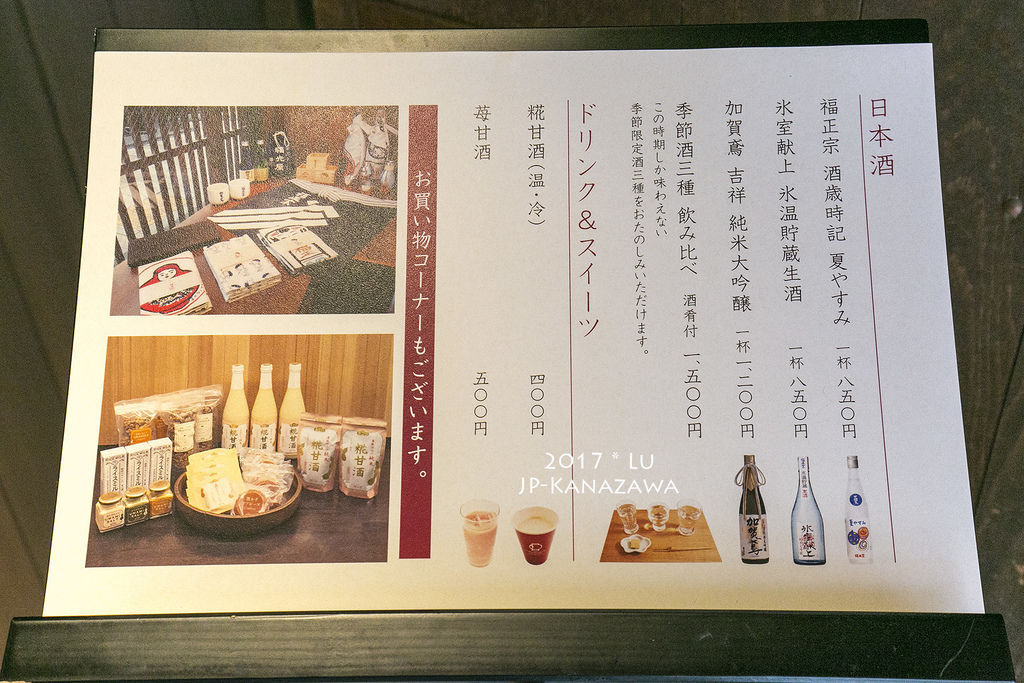 日本酒
福正宗 酒歳時記 夏やすみ 一杯 八五〇円
氷室献上 氷温貯蔵生酒 一杯 八五〇円
加賀鳶 吉祥 純米大吟醸 一杯 一、二〇〇円
季節酒三種 飲み比べ 酒肴付 一、五〇〇円
この時期しか味わえない
季節限定酒三種をおたのしみいただけます。
ドリンク&スイーツ
糀甘酒(温・冷) 四〇〇円
苺甘酒 五〇〇円
お買い物コーナーもございます。
糀甘酒
糀甘酒
糀甘酒
糀甘酒
糀甘酒
ライスミルク
加賀鳶
氷室献上
夏やすみ
2017 * LU
JP-KANAZAWA